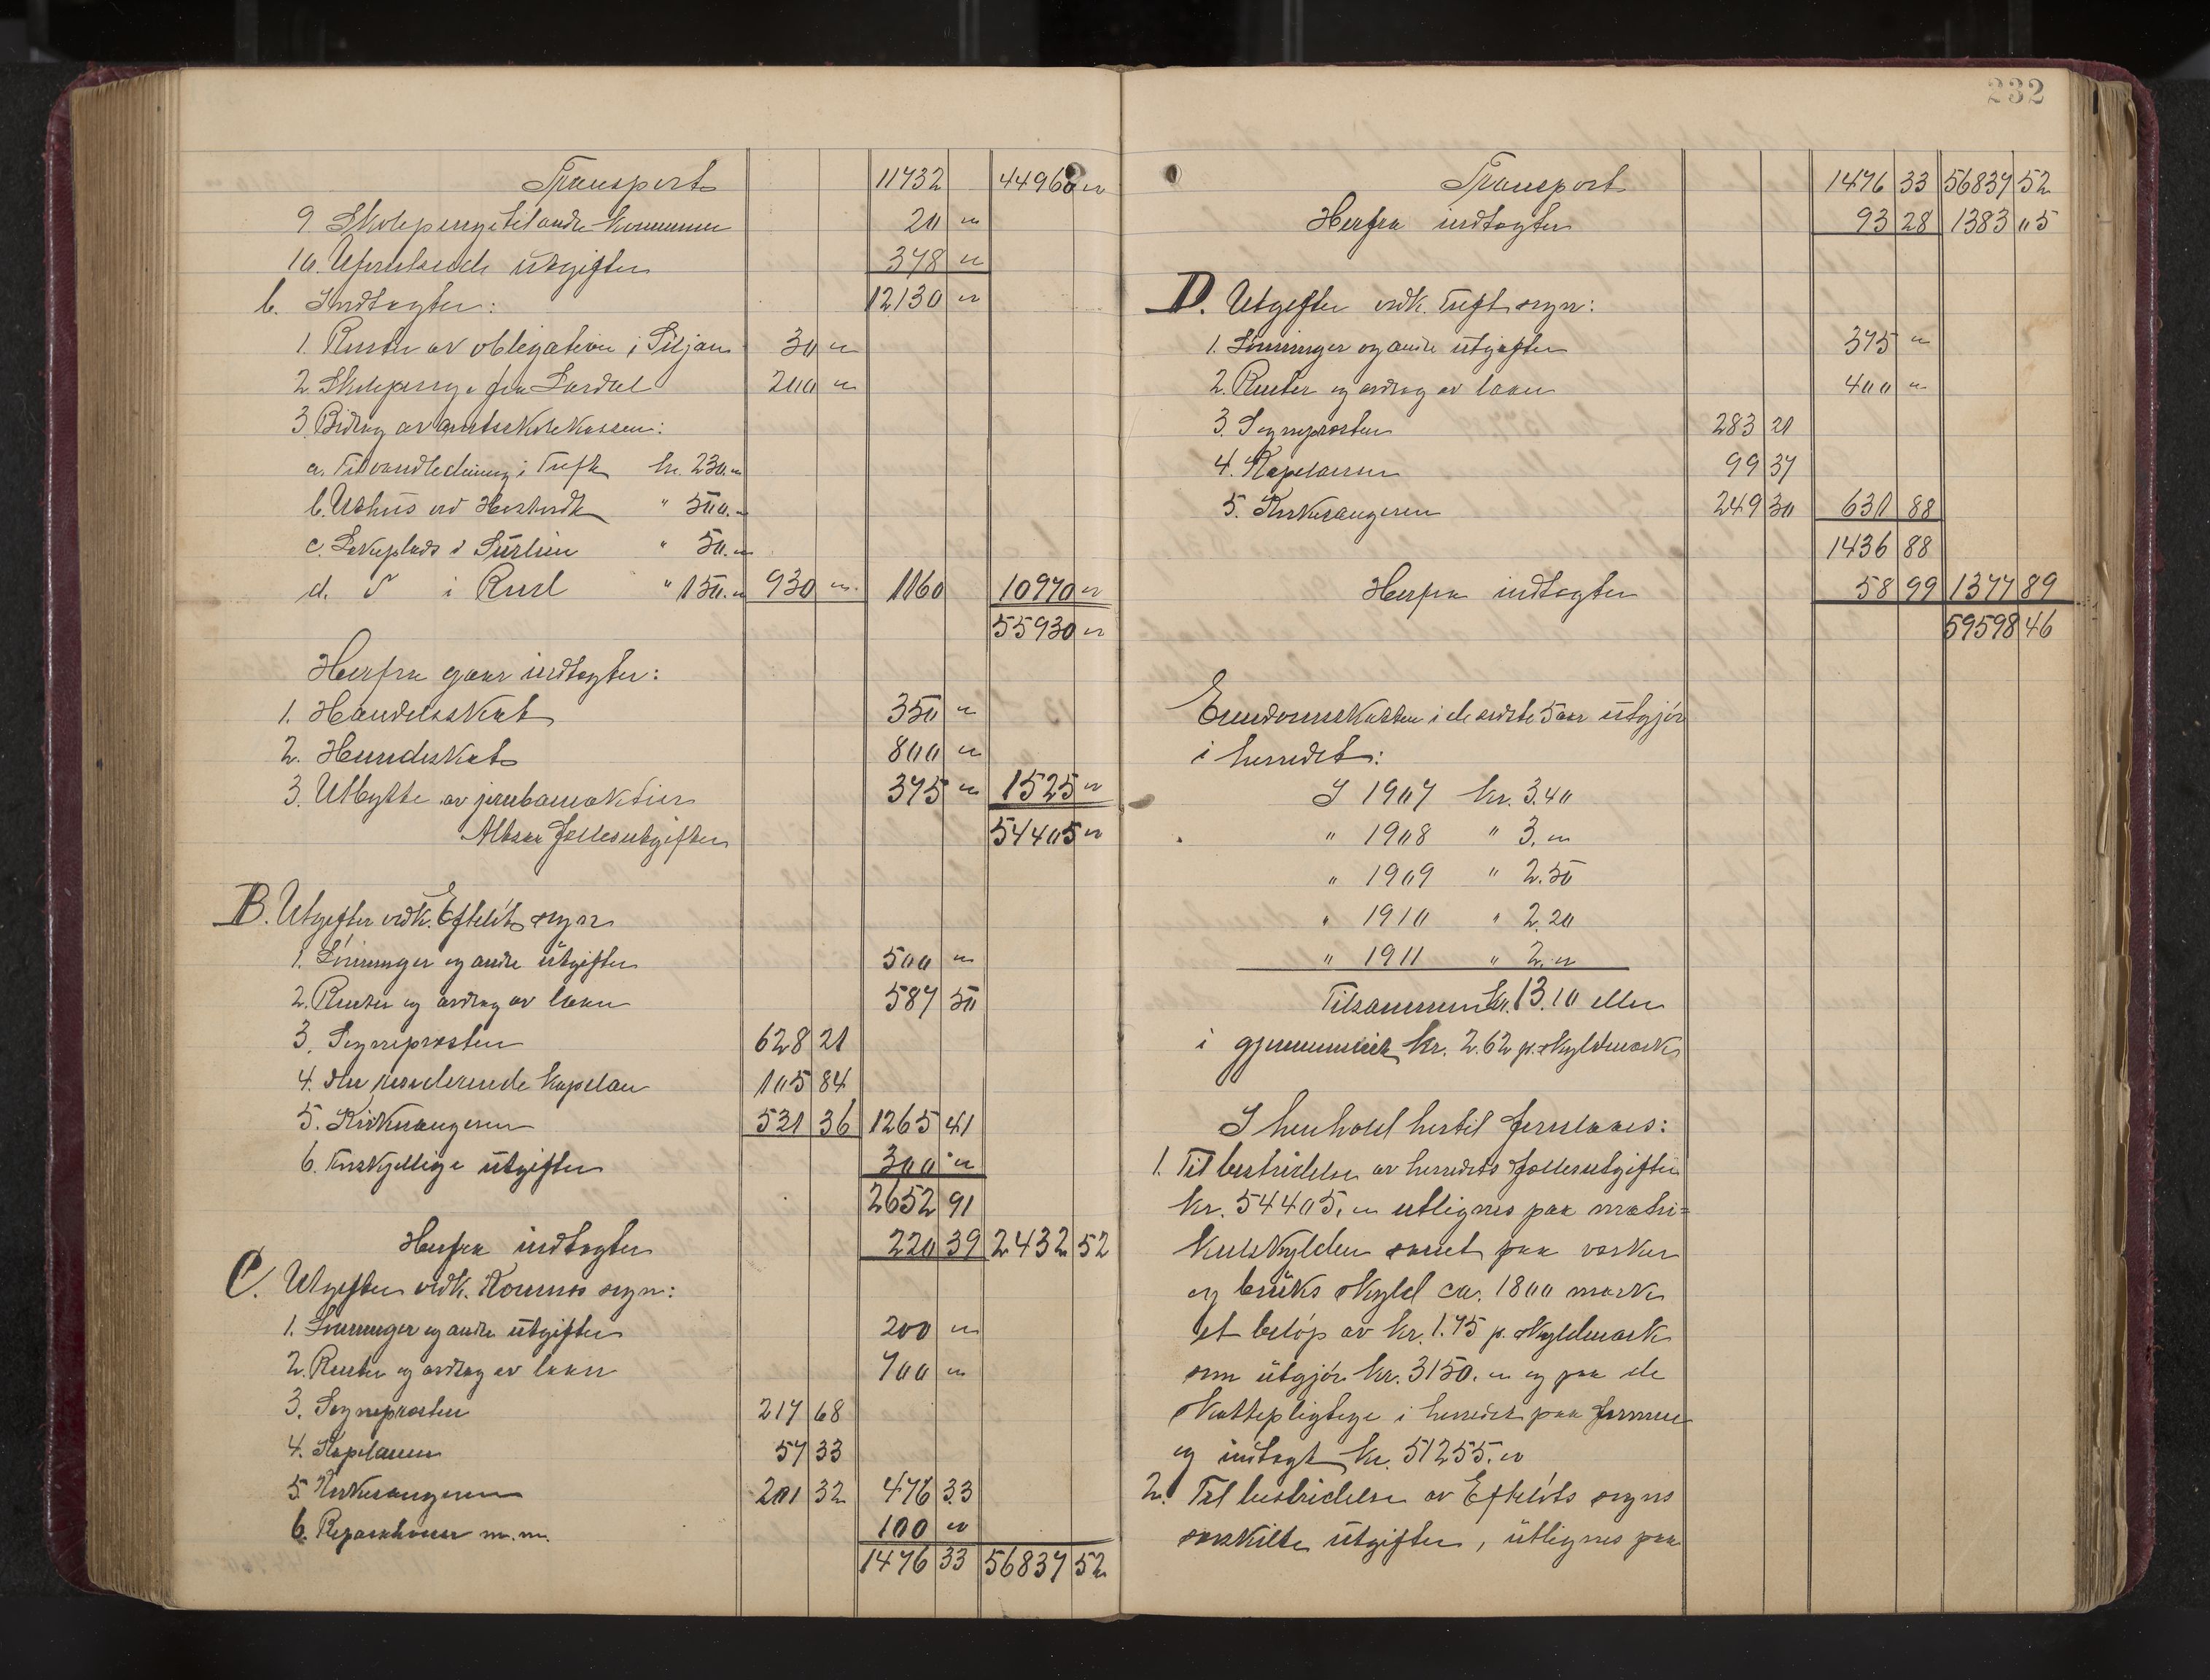 Transport 11732 44960 "
9. Skolepenge til andre kommuner 20 "
10. Uforutseede utgifter 378 "
b. Indtægter: 12130 "
1. Renter av obligation i Siljan 30 "
2. Skolepenge fra Lardal 200 "
3. Bidrag av amtsskolekassen:
a. Til vandledning i Tuft kr. 230. "
b. Uthus ved " 500. "
c. Lekeplads i " 50. "
d. d° i Rud " 150. " 930 " 1160 10970 "
55930 "
Herfra gaar indtægter:
1. Handelsskat 350 "
2. Hundeskat 800 "
3. Utbytte av jernbaneaktier 375 " 1525 "
Altsaa Fællesutgifter 54405 "
B. Utgifter vedk. Efteløts sogn
1. Lønninger og andre utgifter 500 "
2. Renter og avdrag av laan 587 50
3. Sognepresten 628 21
4. den residerende kapelan 105 84
5. Kirkesangeren 531 36 1265 41
6. Forskjellige utgifter 300 "
2652 91
Herfra indtægter 220 39 2432 52
C. Utgifter vedk. Komnes sogn:
1. Lønninger og andre utgifter 200 "
2. Renter og avdrag av laan 700 "
3. Sognepresten 217 68
4. Kapelanen 57 33
5. Kirkesangeren 201 32 476 33
6. Reparationer m.m. 100 "
1476 33 56837 52
232
Transport 1476 33 56837 52
Herfra indtægter 93 28 1383 05
D. Utgifter vedk. Tuft sogn:
1. Lønninger og andre utgifter 375 "
2. Renter og avdrag av laan 400 "
3. Sognepresten 283 21
4. Kapelanen 99 37
5. Kirkesangeren 249 30 631 88
1436 88
Herfra indtægter 58 99 1377 89
59598 46
Eiendomsskatten i de sidste 5 aar utgjør
i herredet:
I 1907 kr. 3.40
" 1908 " 3. "
" 1909 " 2.50
" 1910 " 2.20
" 1911 " 2. "
Tilsammen kr. 13.10 eller
i gjennemsnit kr. 2.62 p. skyldmark
I henhold hertil foreslaaes:
1. Til bestridelse av herredets fællesutgifter
kr. 54405. " utlignes paa matri=
kulskylden samt paa verker
og bruks skyld ca. 1800 mark
et beløp av kr. 1.75 p. skyldmark
som utgjør kr. 3150. " og paa de
skattepligtige i herredet paa formue
og indtægt kr. 51255. "
2. Til bestridelse av Efteløts sogns
særskilte utgifter, utlignes paa